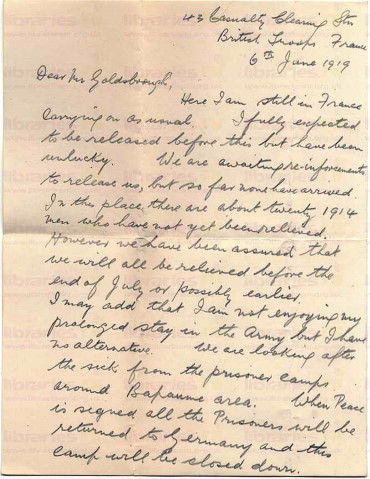 43 Casualty Clearing Stn
British Troops France
6th June 1919
Dear Mr Goldsbrough,
Here I am still in France
Carrying on as usual. I fully expected
to be released before this but have been
unlucky. We are awaiting re-inforcements
to release us, but so far none have arrived.
In this place, there are about twenty 1914
men who have not yet been relieved.
However we have been assured that
we will all be relieved before the
end of July or possibly earlier.
I may add that I am not enjoying my
prolonged stay in the Army but I have
no alternative. We are looking after
the sick from the prisoner camps
around Bapaume area. When Peace
is signed all the Prisoners will be
returned to Germany and this
Camp will be closed down.